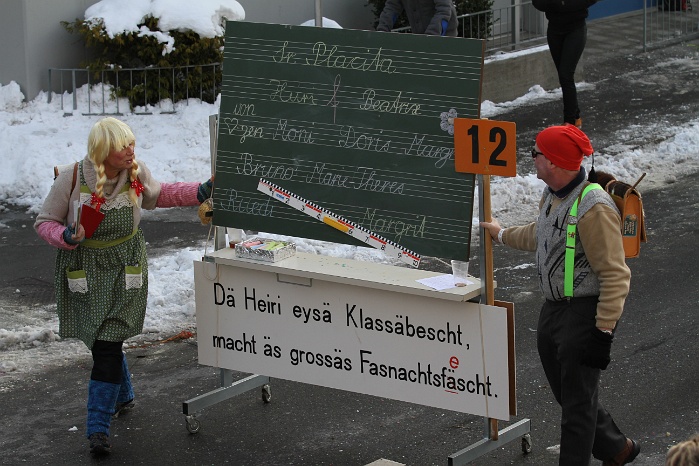 Sr. Placita
Hum & Beatrix
von
Moni Doris Marg
Bruno Marie Theres
Margrit
12
Dä Heiri eysä Klassäbescht,
macht äs grossäs Fasnachtsfäscht.
e